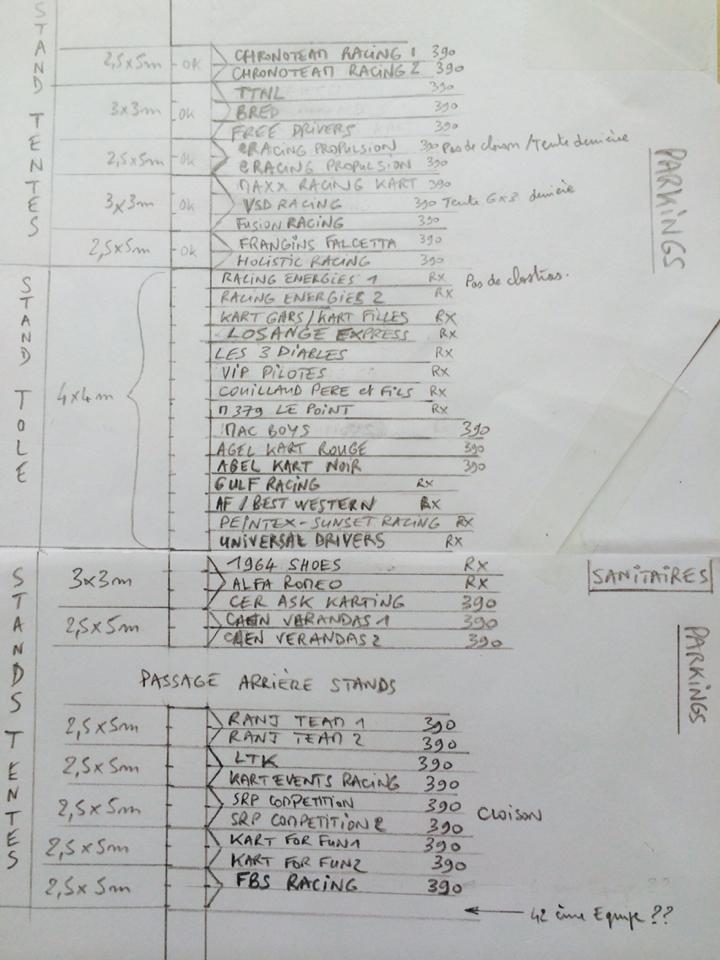 STAND TENTES
2,5x5m OK CHRONOTEAM RACING 1 390
CHRONOTEAM RACING 2 390
TTNL 390
3x3m OK BRED 390
FREE DRIVERS 390
eRACING PROPULSION 390 Pas de cloison / Tente dernière
2,5x5m OK eRACING PROPULSION 390
MAXX RACING KART 390
3x3m OK VSD RACING 390 Tente 6x3 dernière
FUSION RACING 390
2,5x5m OK FRANGINS FALCETTA 390
HOLISTIC RACING 390
PARKINGS
STAND TOLE
4x4m
RACING ENERGIES 1 RX Pas de
RACING ENERGIES 2 RX
KART GARS/KART FILLES RX
LOSANGE EXPRESS RX
LES 3 DIABLES RX
VIP PILOTES RX
COUILLAUD PERE et FILS RX
M379 LE POINT RX
MAC BOYS 390
AGEL KART ROUGE 390
AGEL KART NOIR 390
GULF RACING RX
AF / BEST WESTERN RX
PEINTEX-SUNSET RACING RX
UNIVERSAL DRIVERS RX
STANDS TENTES
3x3m 1964 SHOES RX
ALFA ROMEO RX
CER ASK KARTING 390
2,5x5m CAEN VERANDAS 1 390
CAEN VERANDAS 2 390
SANITAIRES
PARKINGS
PASSAGE ARRIÈRE STANDS
2,5x5m RANJ TEAM 1 390
RANJ TEAM 2 390
2,5x5m LTK 390
KART EVENTS RACING 390
2,5x5m SRP COMPETITION 390 CLOISON
SRP COMPETITION 2 390
2,5x5m KART FOR FUN 1 390
KART FOR FUN 2 390
2,5x5m FBS RACING 390
42 ème Equipe ??